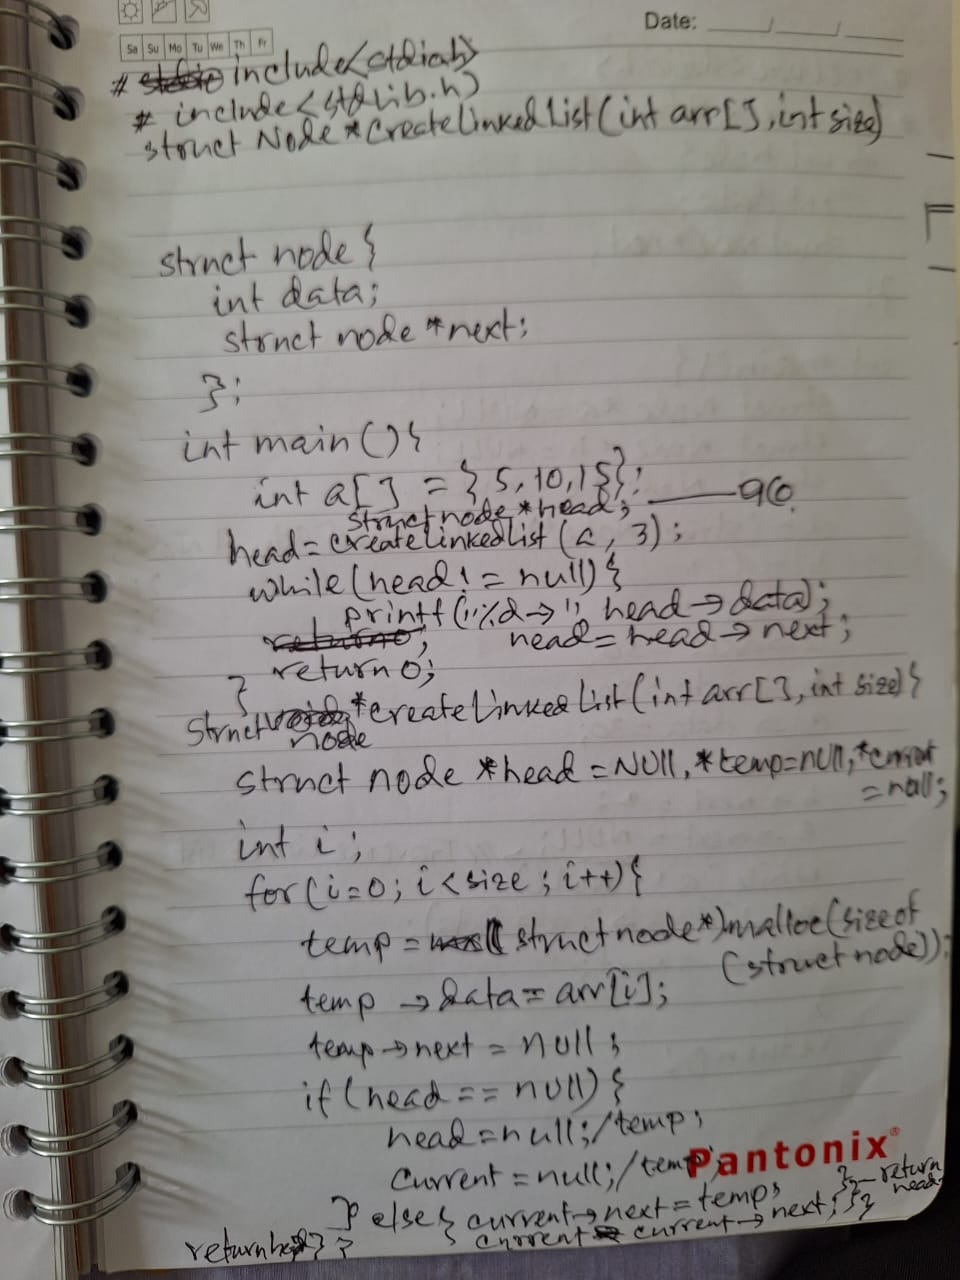 Date: ___/___/___
Sa Su Mo Tu We Th Fr
# include<stdio.h>
# include<stdlib.h>
struct Node *createlinkedlist(int arr[], int size)
struct node {
int data;
struct node *next;
};
int main() {
int a[] = {5, 10, 15};
struct node *head;
head = createlinkedlist(a, 3);
while(head != null) {
printf("%d->", head->data);
head = head->next;
return 0;
}
struct node *createlinkedlist(int arr[], int size) {
struct node *head = NULL, *temp=null, *current
= null;
int i;
for(i=0; i<size; i++) {
temp = (struct node*)malloc(sizeof
(struct node));
temp -> data = arr[i];
temp->next = null;
if(head == null) {
head = null;/temp;
current = null;/temp;
Pantonix®
} else { current->next = temp;
current = current->next; }}
return
head
return head } }